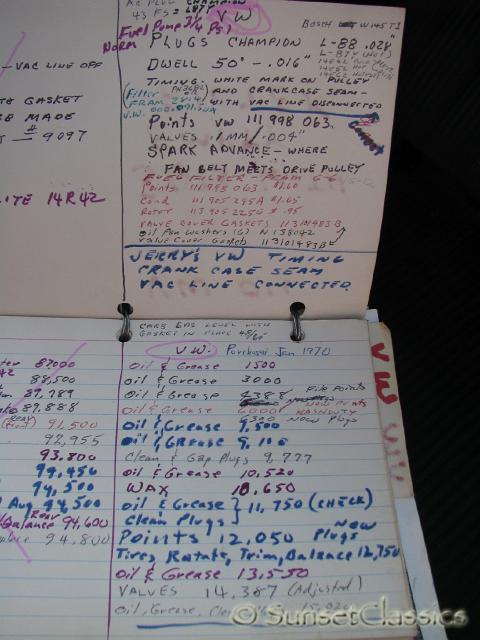 VAC LINE OFF
GASKET
SE MADE
# 9097
ITE 14R42
AC PLUG CHAMPION
43 FS = L87Y
VW
Fuel Pump 3/4 PSI
Norm
Bosch W145T1
PLUGS CHAMPION L-88 .028"
L-87Y (Hot)
DWELL 50° - .016"
TIMING: WHITE MARK ON PULLEY
AND CRANKCASE SEAM-
WITH VAC LINE DISCONNECTED
Filter
FRAM
V.W.
Points VW 111 998 063
VALVES .1MM/.004"
SPARK ADVANCE - WHERE
FAN BELT MEETS DRIVE PULLEY
FUEL FILTER - FRAM G-6
Points 111 998 063 $1.60
Cond 111 905 295A $1.65
Rotor 113 905 225G $.95
VALVE COVER GASKETS 113101483B
Oil Pan Washers (6) N 138042
Valve Cover Gaskets 113101483B
JERRY'S VW TIMING
CRANK CASE SEAM
VAC LINE CONNECTED
CARB GAS LEVEL WITH
GASKET IN PLACE
V.W. Purchased Jan 1970
Oil & Grease 1500
Oil & Grease 3000
Oil & Grease 4388 File Points
Oil & Grease 6000 New Points
6300 New Plugs
Oil & Grease 7,500
Oil & Grease 9,100
Clean & Gap Plugs 9,777
Oil & Grease 10,520
WAX 10,650
Oil & Grease } 11,750 (CHECK)
Clean Plugs
Points 12,050 New Plugs
Tires, Rotate, Trim, Balance 12,750
Oil & Grease 13,550
VALVES 14,387 (Adjusted)
Oil, Grease,
87,000
88,500
89,888
91,500
92,955
93,800
94,450
94,500
Aug 94,500
Rear
Balance 94,600
94,800
VW
© SunsetClassics